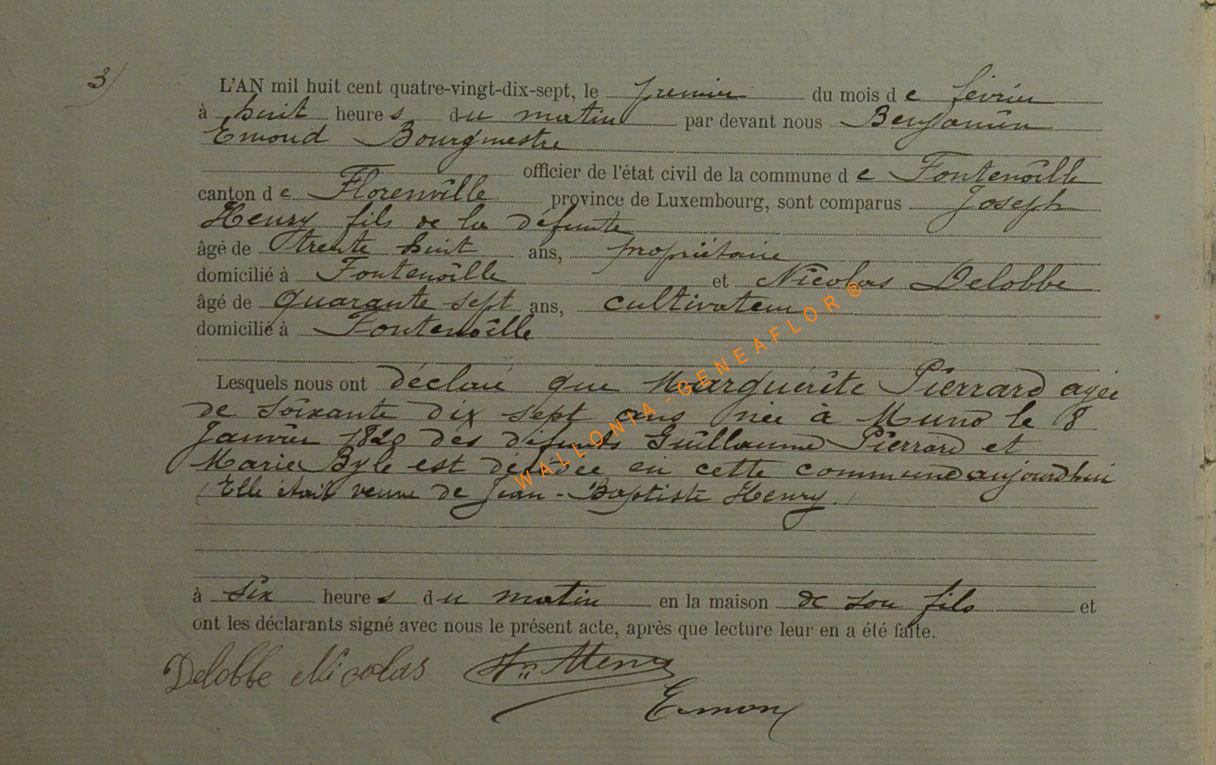 3)
L'AN mil huit cent quatre-vingt-dix-sept, le premier du mois de février
à huit heures du matin par devant nous Benjamin
Emond Bourgmestre
officier de l'état civil de la commune de Fontenoille
canton de Florenville province de Luxembourg, sont comparus Joseph
Henry fils de la défunte
âgé de trente huit ans, propriétaire
domicilié à Fontenoille et Nicolas Delobbe
âgé de quarante sept ans, cultivateur
domicilié à Fontenoille
Lesquels nous ont déclaré que Marguérite Pierrard agée
de soixante dix sept ans née à Muno le 8
Janvier 1820 des défunts Guillaume Pierrard et
Marie Byle est décédée en cette commune aujourd'hui
(Elle était veuve de Jean-Baptiste Henry.)
à six heures du matin en la maison de son fils et
ont les déclarants signé avec nous le présent acte, après que lecture leur en a été faite.
Delobbe Nicolas
Emond
WALLONIA-GENEAFLOR®